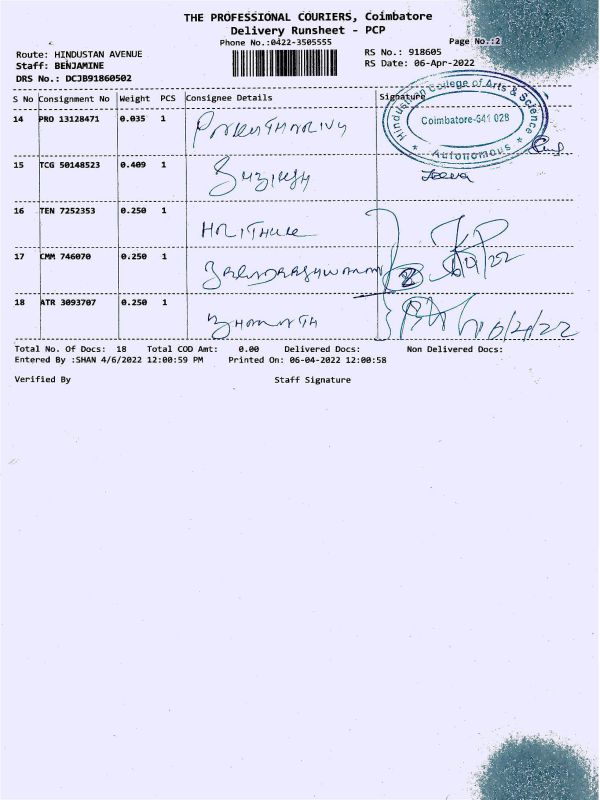 THE PROFESSIONAL COURIERS, Coimbatore
Delivery Runsheet - PCP
Phone No.:0422-3505555
Page No.:2
Route: HINDUSTAN AVENUE
Staff: BENJAMINE
DRS No.: DCJB91860502
RS No.: 918605
RS Date: 06-Apr-2022
S No Consignment No Weight PCS Consignee Details Signature
Hindusthan College of Arts & Science
Coimbatore-641 028
* Autonomous *
14 PRO 13128471 0.035 1
15 TCG 50148523 0.409 1
16 TEN 7252353 0.250 1
17 CMM 746070 0.250 1
18 ATR 3093707 0.250 1
Total No. Of Docs: 18 Total COD Amt: 0.00 Delivered Docs: Non Delivered Docs:
Entered By :SHAN 4/6/2022 12:00:59 PM Printed On: 06-04-2022 12:00:58
Verified By Staff Signature